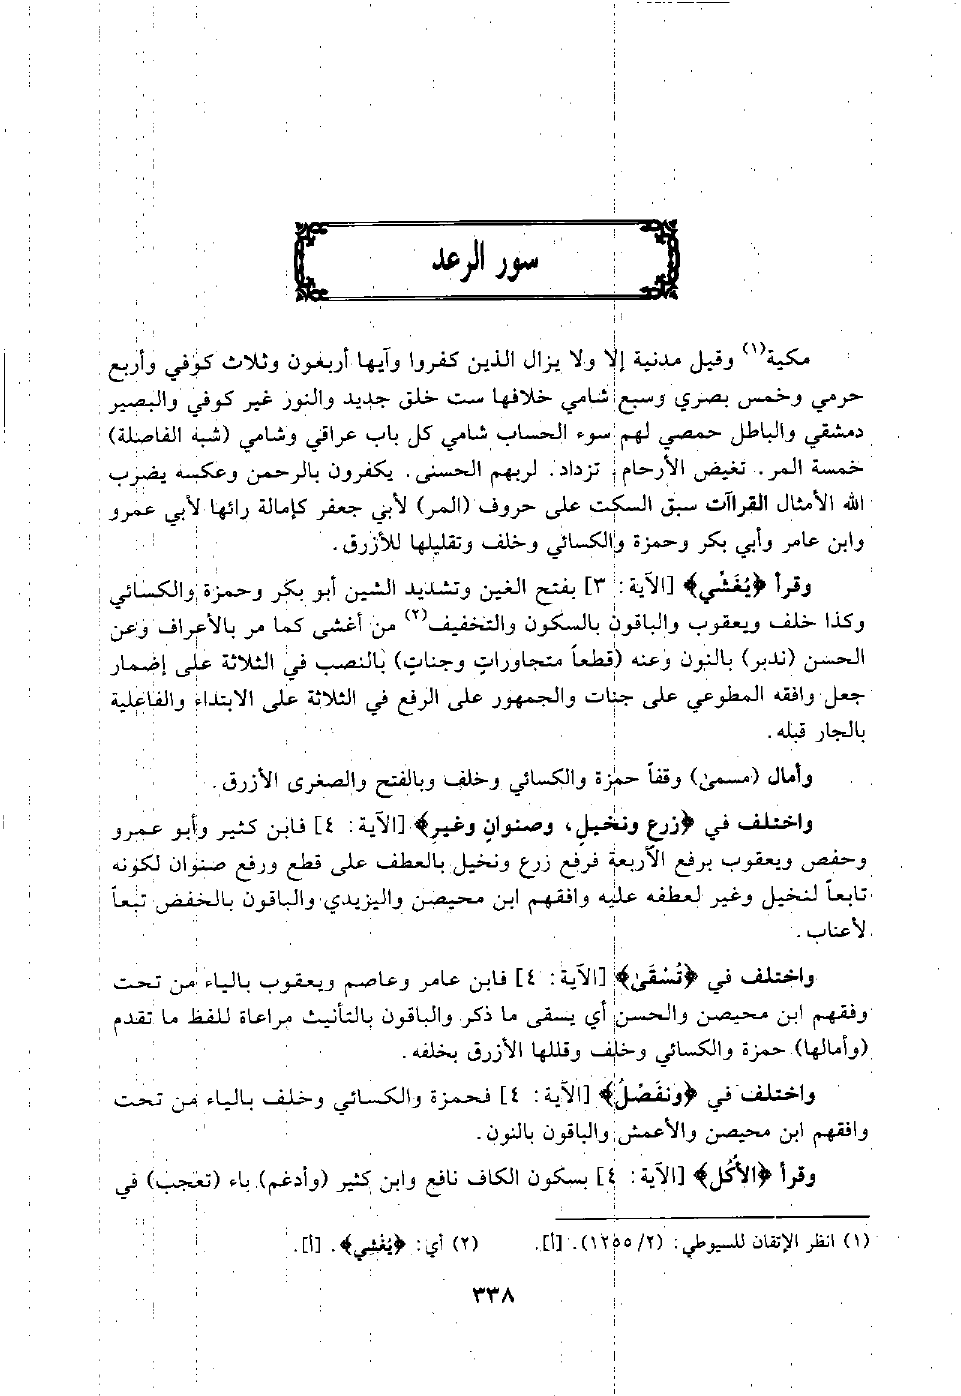 سور الرعد
مكية(١) وقيل مدنية إلا ولا يزال الذين كفروا وآيها أربعون وثلاث كوفي وأربع
حرمي وخمس بصري وسبع شامي خلافها ست خلق جديد والنور غير كوفي والبصير
دمشقي والباطل حمصي لهم سوء الحساب شامي كل باب عراقي وشامي (شبه الفاصلة)
خمسة المر. تغيض الأرحام. تزداد. لربهم الحسنى. يكفرون بالرحمن وعكسه يضرب
الله الأمثال القراآت سبق السكت على حروف (المر) لأبي جعفر كإمالة رائها لأبي عمرو
وابن عامر وأبي بكر وحمزة والكسائي وخلف وتقليلها للأزرق.
وقرأ ﴿يُغَشِّي﴾ [الآية: ٣] بفتح الغين وتشديد الشين أبو بكر وحمزة والكسائي
وكذا خلف ويعقوب والباقون بالسكون والتخفيف(٢) من أغشى كما مر بالأعراف وعن
الحسن (ندبر) بالنون وعنه (قطعاً متجاوراتٍ وجناتٍ) بالنصب في الثلاثة على إضمار
جعل وافقه المطوعي على جنات والجمهور على الرفع في الثلاثة على الابتداء والفاعلية
بالجار قبله.
وأمال (مسمىٰ) وقفاً حمزة والكسائي وخلف وبالفتح والصغرى الأزرق.
واختلف في ﴿زرع ونخيلٍ، وصنوانٍ وغيرِ﴾ [الآية: ٤] فابن كثير وأبو عمرو
وحفص ويعقوب برفع الأربعة فرفع زرع ونخيل بالعطف على قطع ورفع صنوان لكونه
تابعاً لنخيل وغير لعطفه عليه وافقهم ابن محيصن واليزيدي والباقون بالخفض تبعاً
لأعناب.
واختلف في ﴿تُسْقَىٰ﴾ [الآية: ٤] فابن عامر وعاصم ويعقوب بالياء من تحت
وفقهم ابن محيصن والحسن أي يسقى ما ذكر والباقون بالتأنيث مراعاة للفظ ما تقدم
(وأمالها) حمزة والكسائي وخلف وقللها الأزرق بخلفه.
واختلف في ﴿ونفَصِّلُ﴾ [الآية: ٤] فحمزة والكسائي وخلف بالياء من تحت
وافقهم ابن محيصن والأعمش والباقون بالنون.
وقرأ ﴿الأُكُل﴾ [الآية: ٤] بسكون الكاف نافع وابن كثير (وأدغم) باء (تعجب) في
(١) انظر الإتقان للسيوطي: (١٢٥٥/٢). [أ]. (٢) أي: ﴿يُغْشِي﴾. [أ].
٣٣٨